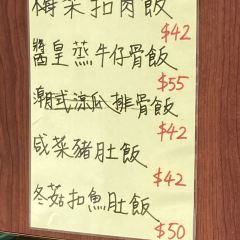 梅菜扣肉飯
$42
醬皇蒸牛仔骨飯
$55
潮式涼瓜排骨飯
$42
咸菜豬肚飯
$42
冬菇扣魚肚飯
$50